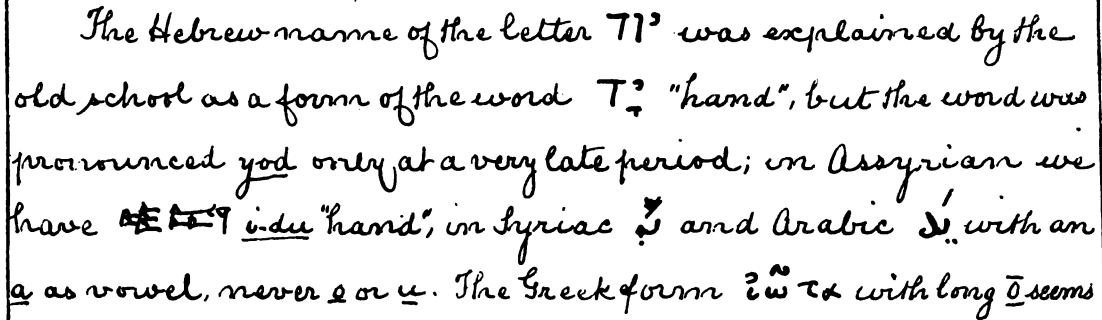 The Hebrew name of the letter יוד was explained by the
old school as a form of the word יָד "hand", but the word was
pronounced yod only at a very late period; in Assyrian we
have i-du "hand", in Syriac and Arabic يَد with an
a as vowel, never o or u. The Greek form ἰῶτα with long ō seems